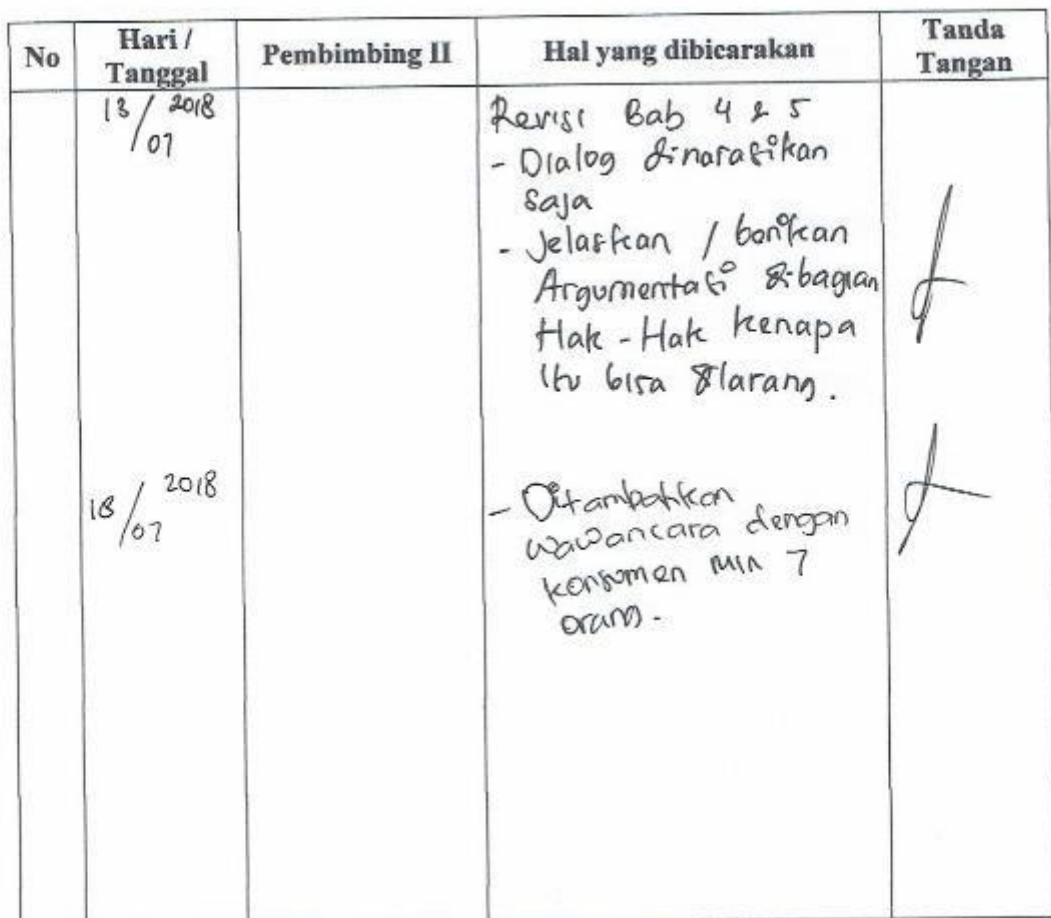 No
Hari /
Tanggal
Pembimbing II
Hal yang dibicarakan
Tanda
Tangan
13/07 2018
Revisi Bab 4 & 5
- Dialog dinarasikan
saja
- Jelaskan / berikan
Argumentasi dibagian
Hak - Hak kenapa
itu bisa dilarang.
18/07 2018
- Ditambahkan
wawancara dengan
konsumen min 7
orang.